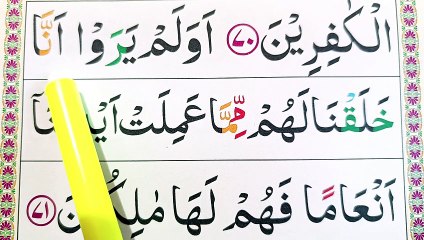 الْكٰفِرِيْنَ ۷۰ اَوَلَمْ يَرَوْا اَنَّا
خَلَقْنَا لَهُمْ مِّمَّا عَمِلَتْ اَيْدِيْنَآ
اَنْعَامًا فَهُمْ لَهَا مٰلِكُوْنَ ۷۱